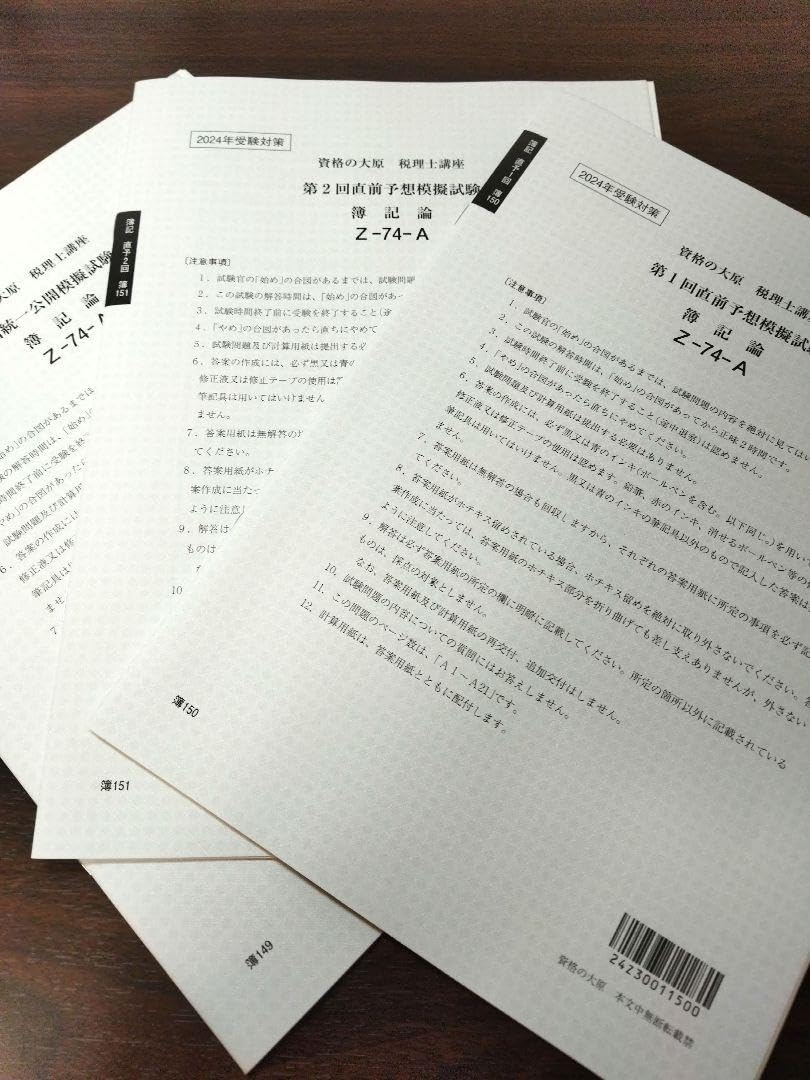 大原 税理士講座
統一公開模擬試験
簿記論
Z-74-A
始め」の合図があるまでは
の解答時間は、「始め」の
時間終了前に受験を終
やめ」の合図があった
試験問題及び計算用
6．答案の作成には
修正液又は修
筆記具は
ませ
7
簿149
簿記 直予2回 簿151
2024年受験対策
資格の大原 税理士講座
第2回直前予想模擬試験
簿記論
Z-74-A
〔注意事項〕
1．試験官の「始め」の合図があるまでは、試験問題
2．この試験の解答時間は、「始め」の合図があっ
3．試験時間終了前に受験を終了すること（途
4．「やめ」の合図があったら直ちにやめて
5．試験問題及び計算用紙は提出する必
6．答案の作成には、必ず黒又は青の
修正液又は修正テープの使用は
筆記具は用いてはいけません
ません。
7．答案用紙は無解答の
てください。
8．答案用紙がホチ
案作成に当たっ
ように注意
9．解答は
ものは
10
簿151
簿記 直予1回 簿150
2024年受験対策
資格の大原 税理士講
第1回直前予想模擬試
簿記論
Z-74-A
〔注意事項〕
1．試験官の「始め」の合図があるまでは、試験問題の内容を絶対に見てはい
2．この試験の解答時間は、「始め」の合図があってから正味2時間です。
3．試験時間終了前に受験を終了すること（途中退室）は認めません。
4．「やめ」の合図があったら直ちにやめてください。
5．試験問題及び計算用紙は提出する必要はありません。
6．答案の作成には、必ず黒又は青のインキ（ボールペンを含む。以下同じ。）を用いて
修正液又は修正テープの使用は認めます。鉛筆、赤のインキ、消せるボールペン等の
筆記具は用いてはいけません。黒又は青のインキの筆記具以外のもので記入した答案は
ません。
7．答案用紙は無解答の場合も回収しますから、それぞれの答案用紙に所定の事項を必ず記
てください。
8．答案用紙がホチキス留めされている場合、ホチキス留めを絶対に取り外さないでください。答
案作成に当たっては、答案用紙のホチキス部分を折り曲げても差し支えありませんが、外さない
ように注意してください。
9．解答は必ず答案用紙の所定の欄に明瞭に記載してください。所定の箇所以外に記載されている
ものは、採点の対象としません。
なお、答案用紙及び計算用紙の再交付、追加交付はしません。
10．試験問題の内容についての質問にはお答えしません。
11．この問題のページ数は、「A1～A21」です。
12．計算用紙は、答案用紙とともに配付します。
簿150
24Z30011500
資格の大原 本文中無断転載禁